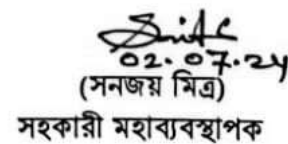 02.07.24
(সনজয় মিত্র)
সহকারী মহাব্যবস্থাপক